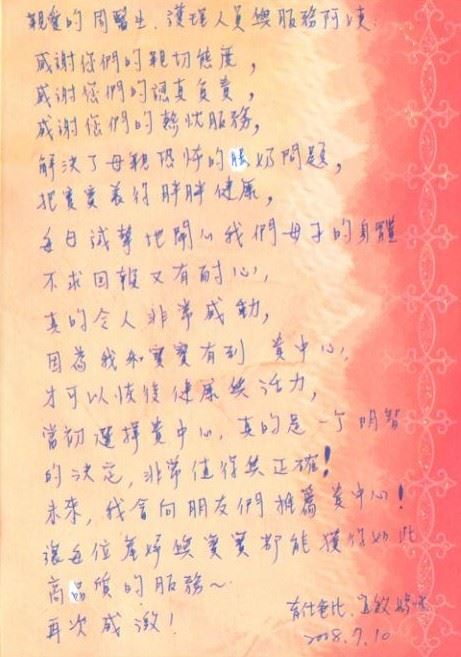 親愛的周醫生、護理人員與服務阿姨：
感謝你們的親切態度，
感謝您們的認真負責，
感謝您們的熱忱服務，
解決了母親恐怖的脹奶問題，
把寶寶養的胖胖健康，
每日誠摯地關心我們母子的身體
不求回報又有耐心，
真的令人非常感動，
因為我和寶寶有到 貴中心，
才可以恢復健康與活力，
當初選擇貴中心，真的是一个明智
的決定，非常值得與正確！
未來，我會向朋友們推薦貴中心！
讓每位產婦與寶寶都能獲得如此
高品質的服務～
再次感激！
宜敏媽咪
2008.7.10